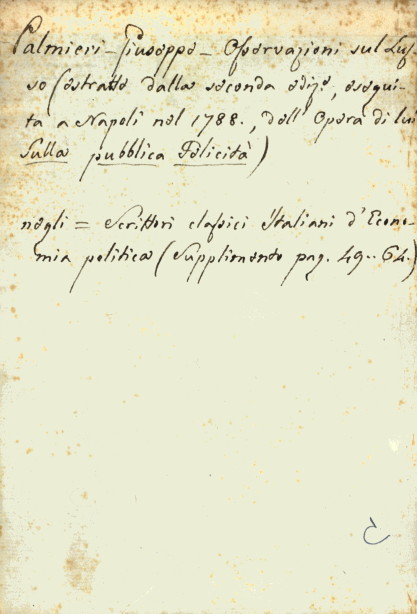 Palmieri - Giuseppe - Osservazioni sul Lus-
so (estratto dalla seconda ediz.e, esegui-
ta a Napoli nel 1788., dell' Opera di lui
Sulla pubblica Felicità)
negli = Scrittori classici Italiani d' Econo-
mia politica (Supplimento pag. 49.. 64.)